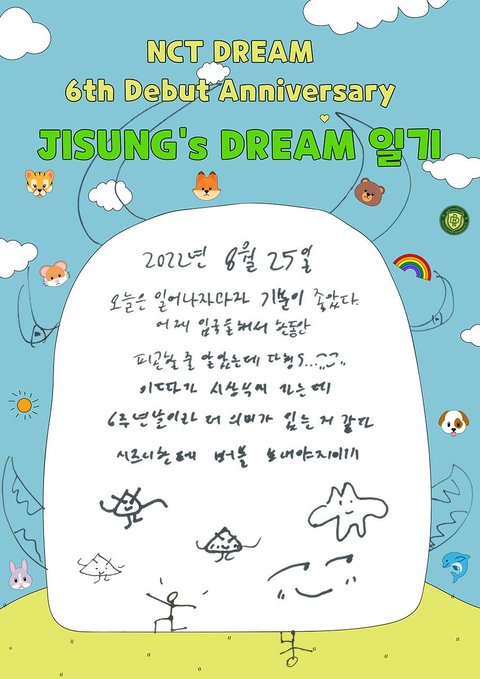 NCT DREAM
6th Debut Anniversary
JISUNG's DREAM 일기
2022년 8월 25일
오늘은 일어나자마자 기분이 좋았다
어제 입국해서 한동안
피곤할 줄 알았는데 다행
이따가 시상식에 가는데
6주년날이라 더 의미가 있는 거 같다
시즈니한테 버블 보내야지이기